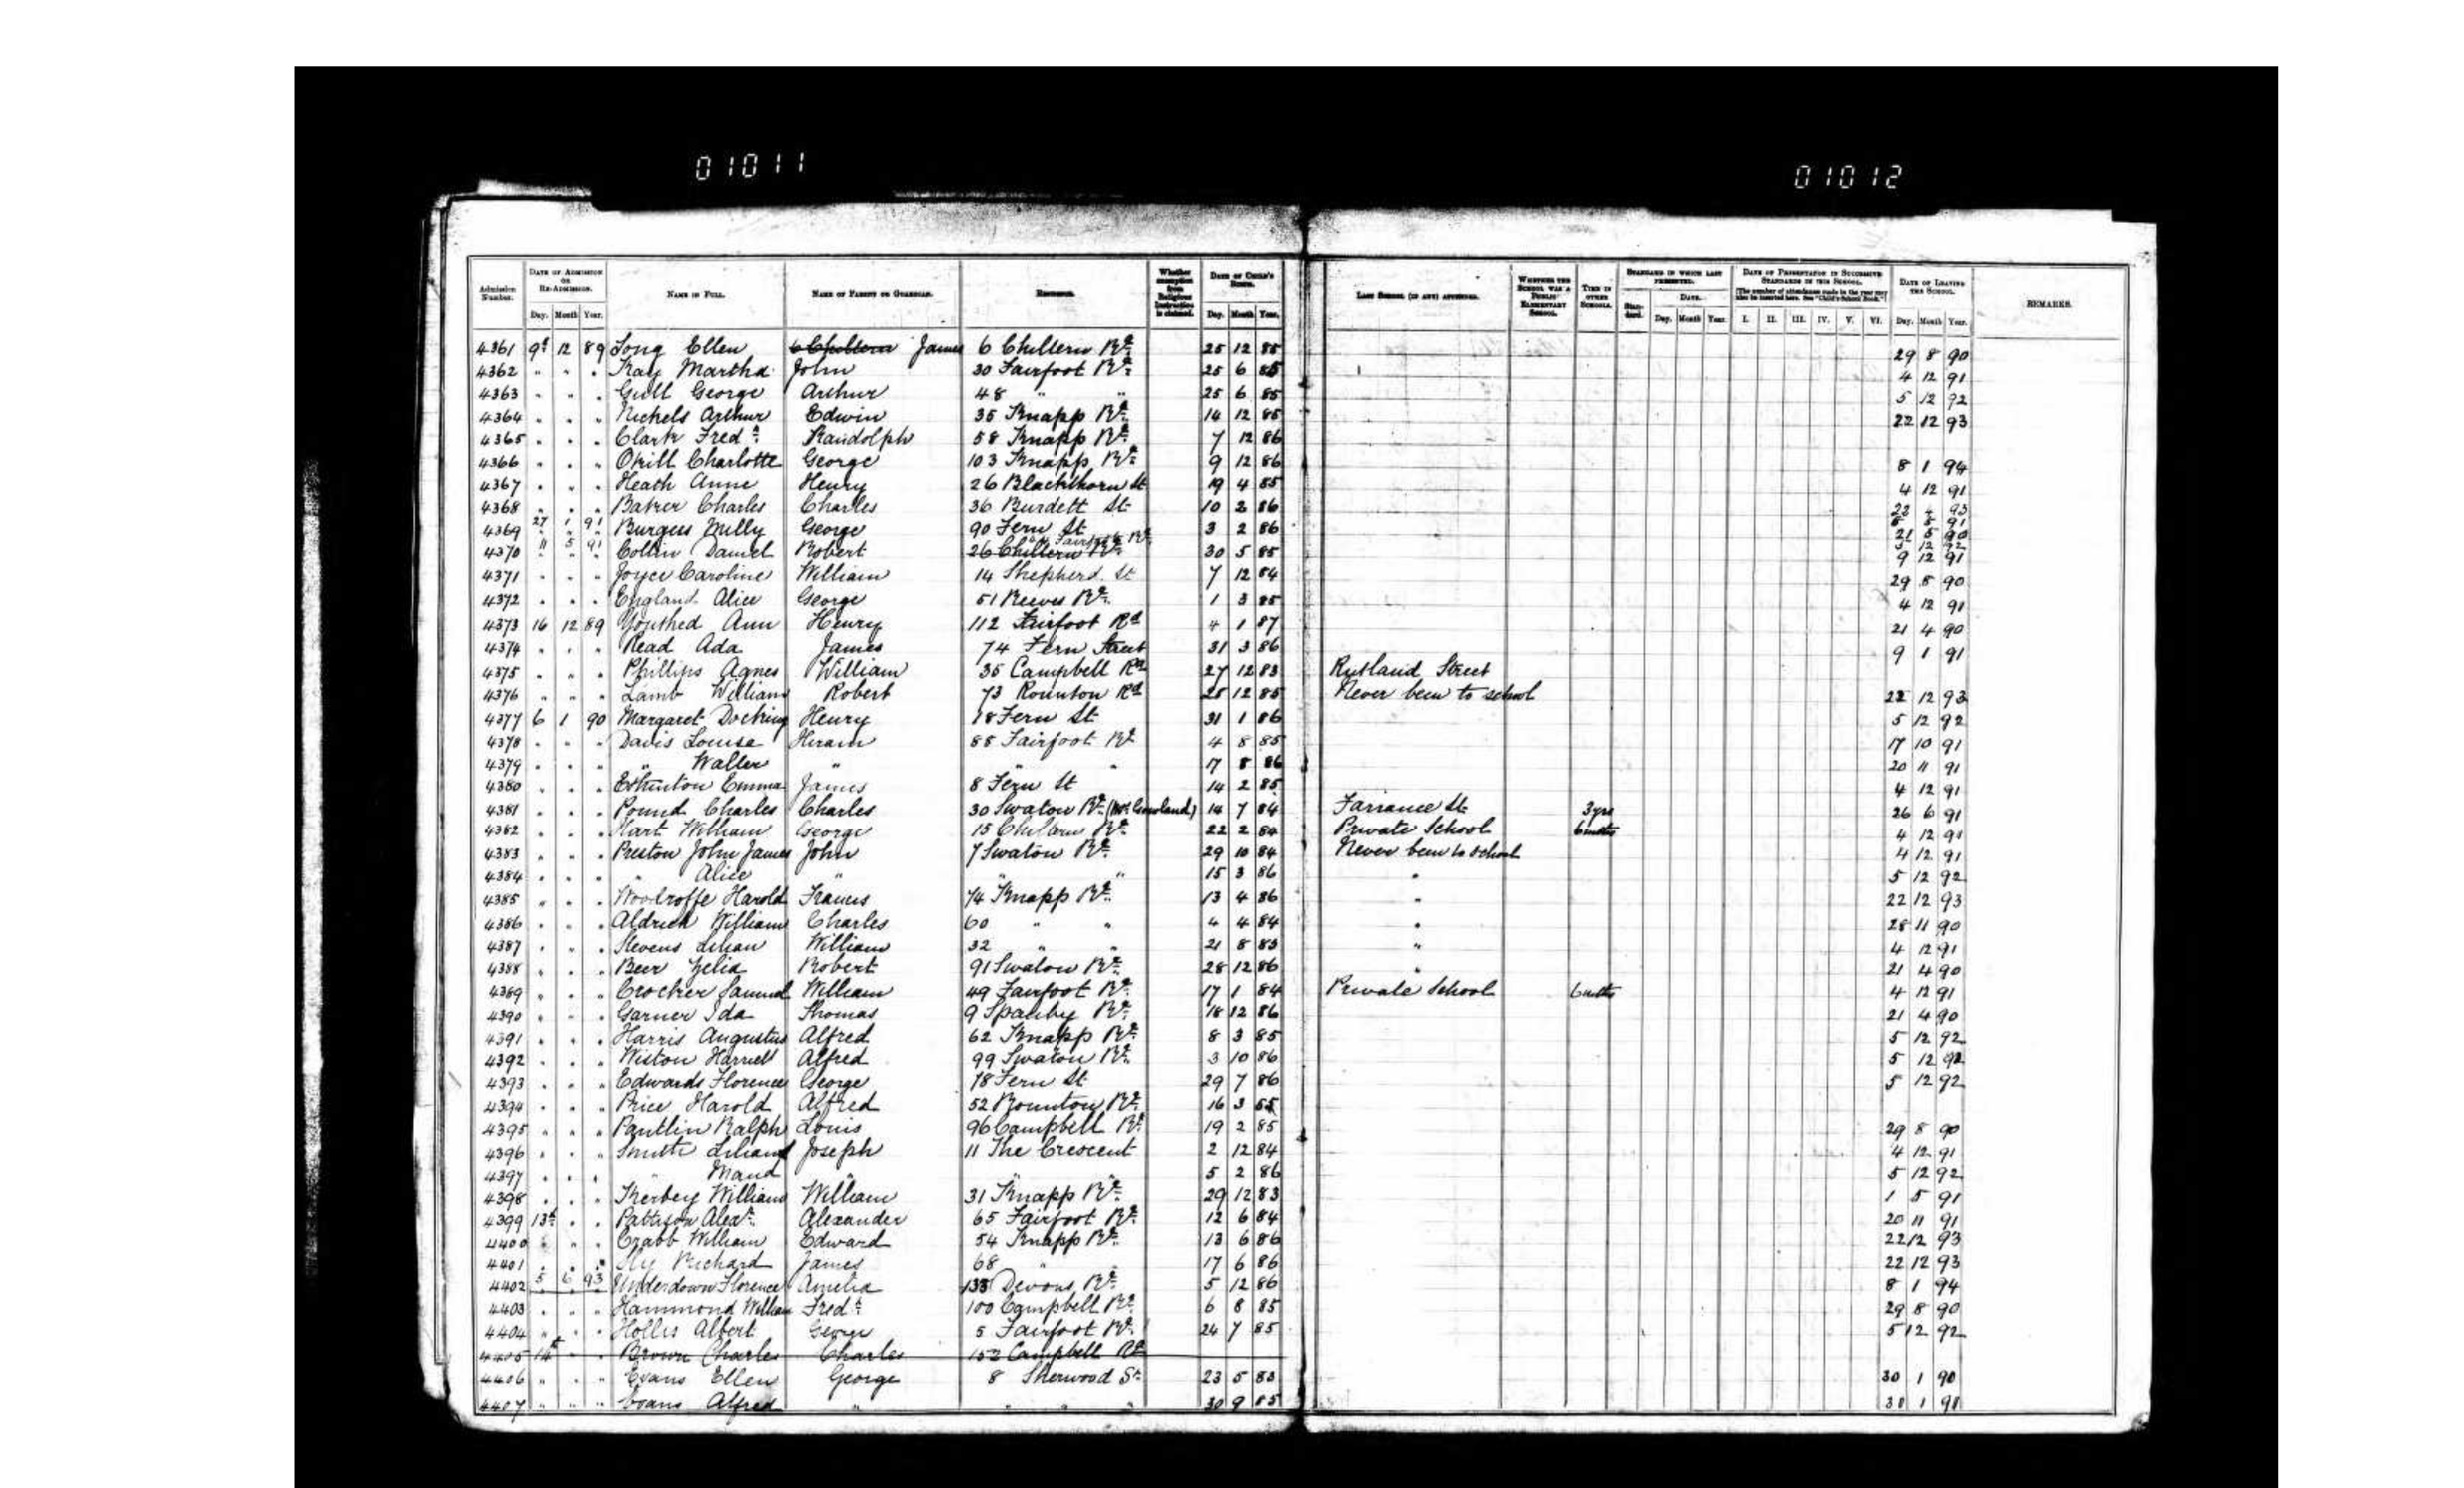 01011
01012
Admission Number.
DATE OF ADMISSION OR RE-ADMISSION.
Day. Month Year.
NAME IN FULL.
NAME OF PARENT OR GUARDIAN.
RESIDENCE.
Whether exemption from Religious Instruction is claimed.
DATE OF CHILD'S BIRTH.
Day. Month Year.
LAST SCHOOL (IF ANY) ATTENDED.
WHETHER THE SCHOOL WAS A PUBLIC ELEMENTARY SCHOOL.
TIME IN OTHER SCHOOLS.
STANDARD IN WHICH LAST PRESENTED.
Standard. DATE. Day. Month Year.
DATE OF PRESENTATION IN SUCCESSIVE STANDARDS IN THIS SCHOOL.
[The number of attendances made in the year may also be inserted here. See "Child's School Book."]
I. II. III. IV. V. VI.
DATE OF LEAVING THE SCHOOL.
Day. Month Year.
REMARKS.
4361 9th 12 89 Long Ellen James 6 Chiltern Rd 25 12 85 29 8 90
4362 " " " Kay Martha John 30 Fairfoot Rd 25 6 85 4 12 91
4363 " " " Gull George Arthur 48 " " 25 6 85 5 12 92
4364 " " " Nichols Arthur Edwin 35 Knapp Rd 14 12 85 22 12 93
4365 " " " Clark Fredk Randolph 58 Knapp Rd 7 12 86
4366 " " " Okill Charlotte George 103 Knapp Rd 9 12 86 8 1 94
4367 " " " Heath Anne Henry 26 Blackthorn St 19 4 85 4 12 91
4368 " " " Baker Charles Charles 36 Burdett St 10 2 86 22 4 93
4369 27 1 91 Burgess Milly George 90 Fern St 3 2 86 21 5 90
4370 11 5 91 Collin Daniel Robert 26 Chiltern Rd 30 5 85 9 12 91
4371 " " " Joyce Caroline William 14 Shepherd St 7 12 84 29 8 90
4372 " " " England Alice George 51 Reeves Rd 1 3 85 4 12 91
4373 16 12 89 Youthed Ann Henry 112 Fairfoot Rd 4 1 87 21 4 90
4374 " " " Read Ada James 74 Fern Street 31 3 86 9 1 91
4375 " " " Phillips Agnes William 35 Campbell Rd 27 12 83 Rutland Street
4376 " " " Lamb William Robert 73 Rounton Rd 25 12 85 Never been to school 22 12 93
4377 6 1 90 Margaret Docking Henry 18 Fern St 31 1 86 5 12 92
4378 " " " Davis Louise Hiram 88 Fairfoot Rd 4 8 85 17 10 91
4379 " " " " Walter " " " 17 8 86 20 11 91
4380 " " " Emma James 8 Fern St 14 2 85 4 12 91
4381 " " " Pound Charles Charles 30 Swaton Rd 14 7 84 Farrance St 3yrs 26 6 91
4382 " " " Hart William George 15 Chiltern Rd 22 2 84 Private School 6 mths 4 12 91
4383 " " " Preston John James John 7 Swaton Rd 29 10 84 Never been to school 4 12 91
4384 " " " " Alice " " " 15 3 86 " 5 12 92
4385 " " " Woodroffe Harold Francis 74 Knapp Rd 13 4 86 " 22 12 93
4386 " " " Aldrich William Charles 60 " " 4 4 84 " 28 11 90
4387 " " " Stevens Lilian William 32 " " 21 8 83 " 4 12 91
4388 " " " Beer Zelia Robert 91 Swaton Rd 28 12 86 " 21 4 90
4389 " " " Crocker Samuel William 49 Fairfoot Rd 17 1 84 Private School 6 mths 4 12 91
4390 " " " Garner Ida Thomas 9 Spanby Rd 18 12 86 21 4 90
4391 " " " Harris Augustus Alfred 62 Knapp Rd 8 3 85 5 12 92
4392 " " " Wiston Harriett Alfred 99 Swaton Rd 3 10 86 5 12 92
4393 " " " Edwards Florence George 18 Fern St 29 7 86 5 12 92
4394 " " " Price Harold Alfred 52 Rounton Rd 16 3 85
4395 " " " Pantlin Ralph Louis 96 Campbell Rd 19 2 85 29 8 90
4396 " " " Smith Lilian Joseph 11 The Crescent 2 12 84 4 12 91
4397 " " " " Maud " " " 5 2 86 5 12 92
4398 " " " Kerbey William William 31 Knapp Rd 29 12 83 1 5 91
4399 13th " " Pattison Alexr Alexander 65 Fairfoot Rd 12 6 84 20 11 91
4400 " " " Crabb William Edward 54 Knapp Rd 13 6 86 22 12 93
4401 " " " Richard James 68 " 17 6 86 22 12 93
4402 5 6 93 Underdown Florence Amelia 133 Devons Rd 5 12 86 8 1 94
4403 " " " Hammond William Fredk 100 Campbell Rd 6 8 85 29 8 90
4404 " " " Hollis Albert George 5 Fairfoot Rd 24 7 85 5 12 92
4405 14th " " Brown Charles Charles 152 Campbell Rd
4406 " " " Evans Ellen George 8 Sherwood St 23 5 83 30 1 90
4407 " " " Evans Alfred " " " " 30 9 85 30 1 90